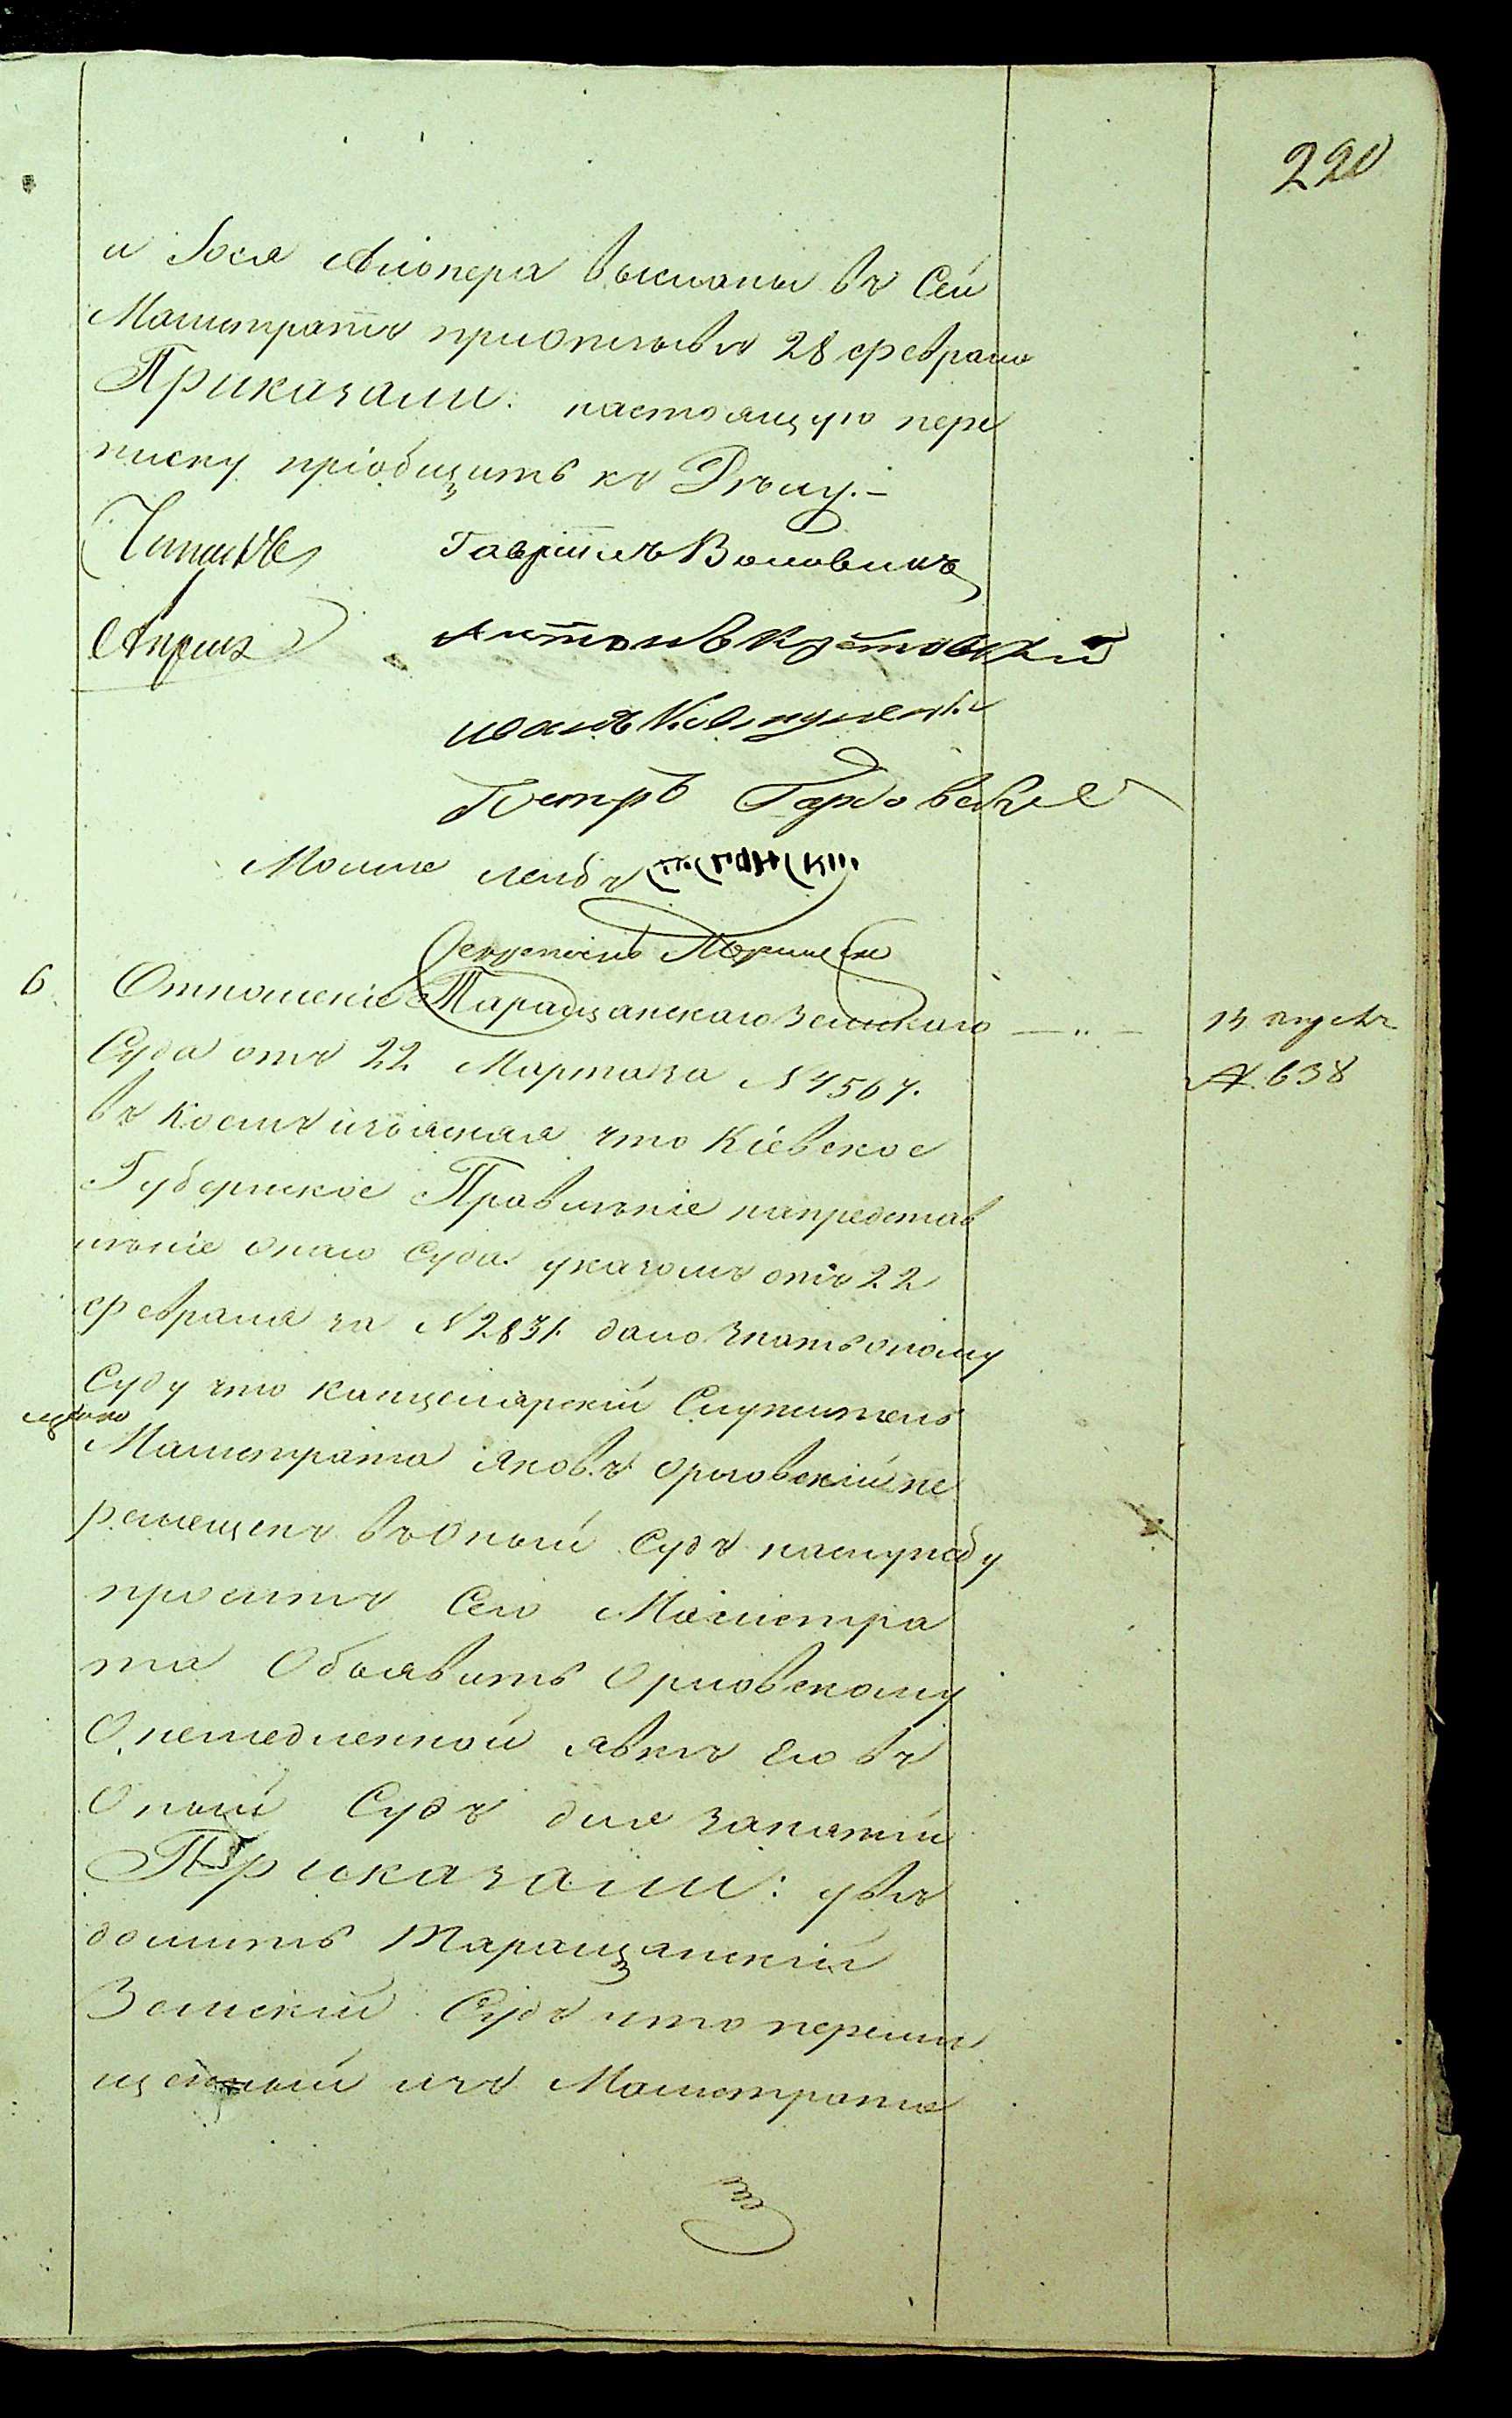 220
и Іося высланы въ Сей
Магистратъ 28 февраля
Приказали: настоящую пере
писку пріобщить къ Дѣлу.-
Гавріилъ Воловикъ
Антонъ
Иванъ
Петръ
Мошке Лейбъ
Секретарь
6. Отношеніе Таращанскаго Земскаго
Суда отъ 22 Марта за N 4567.
въ коемъ изъясняя что Кіевское
Губернское Правленіе на представ
лѣніе онаго Суда указомъ отъ 22
февраля за N 2831. дало знать оному
Суду что канцелярскій Служитель
Магистрата Яковъ Орловскій пе
ремещенъ въ оный Судъ на службу
проситъ Сего Магистра
та Объявить Орловскому
О немедленной явкѣ Его въ
Оный Судъ для занятій
Приказали: увѣ
домить Таращанскій
Земскій Судъ что перемѣ
щенный изъ Магистрата
13
N. 638